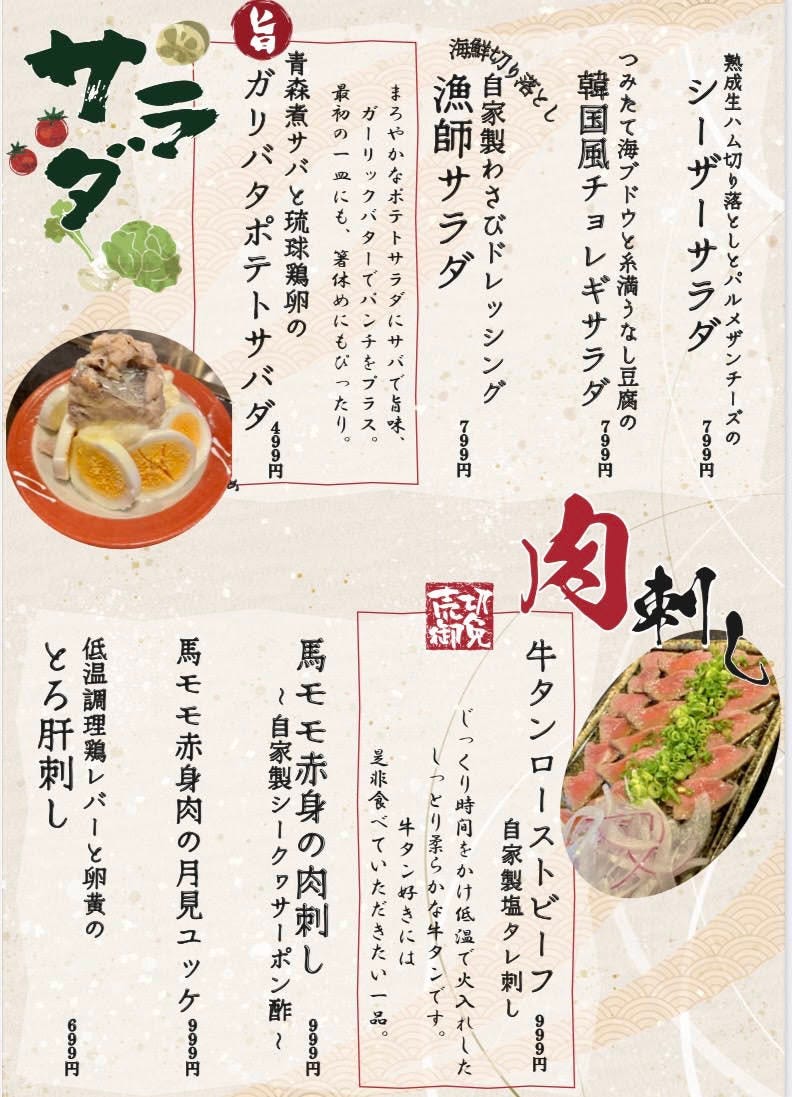 サラダ
熟成生ハム切り落としとパルメザンチーズの
シーザーサラダ
799円
つみたて海ブドウと糸満うなし豆腐の
韓国風チョレギサラダ
799円
海鮮切り落とし
自家製わさびドレッシング
漁師サラダ
799円
旨
まろやかなポテトサラダにサバで旨味、
ガーリックバターでパンチをプラス。
最初の一皿にも、箸休めにもぴったり。
青森煮サバと琉球鶏卵の
ガリバタポテトサバダ
499円
め
肉刺し
売切御免
牛タンローストビーフ
自家製塩タレ刺し
999円
じっくり時間をかけ低温で火入れした
しっとり柔らかな牛タンです。
牛タン好きには
是非食べていただきたい一品。
馬モモ赤身の肉刺し
~自家製シークヮサーポン酢~
999円
馬モモ赤身肉の月見ユッケ
999円
低温調理鶏レバーと卵黄の
とろ肝刺し
699円